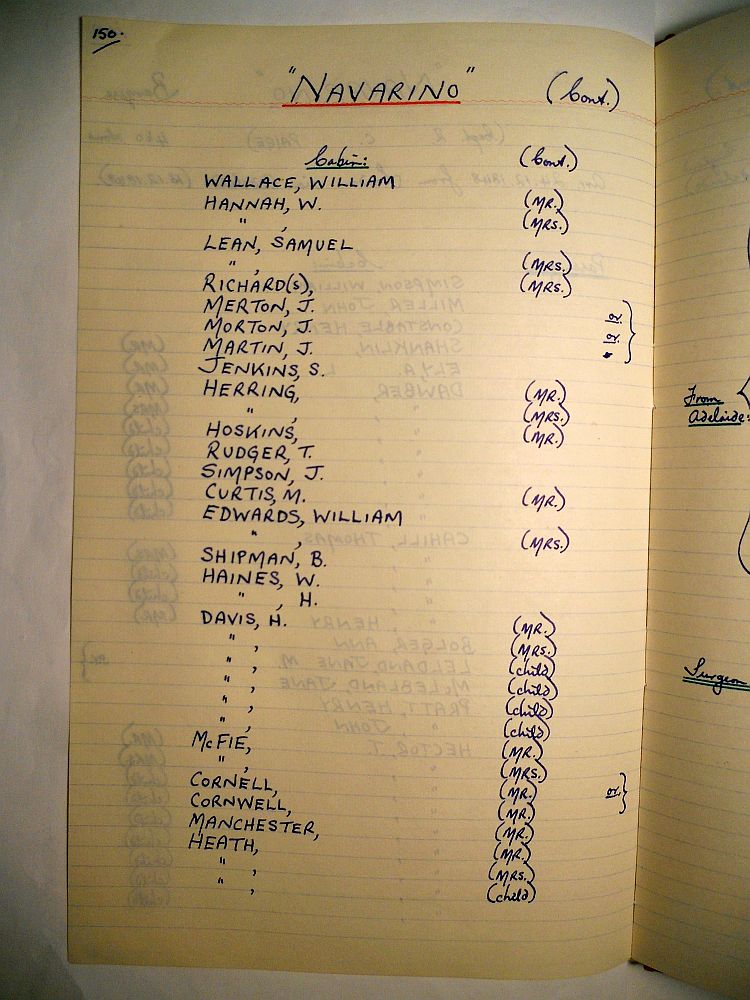 150.
"NAVARINO" (Cont.)
Cabin: (Cont.)
WALLACE, WILLIAM
HANNAH, W. (MR.)
" , (MRS.)
LEAN, SAMUEL
" , (MRS.)
RICHARD(S), (MRS.)
MERTON, J. or
MORTON, J. or
MARTIN, J.
JENKINS, S.
HERRING, (MR.)
" , (MRS.)
HOSKINS, (MR.)
RUDGER, T.
SIMPSON, J.
CURTIS, M. (MR.)
EDWARDS, WILLIAM
" , (MRS.)
SHIPMAN, B.
HAINES, W.
" , H.
DAVIS, H. (MR.)
" , (MRS.)
" , (child)
" , (child)
" , (child)
" , (child)
McFIE, (MR.)
" , (MRS.)
CORNELL, (MR.) or
CORNWELL, (MR.)
MANCHESTER, (MR.)
HEATH, (MR.)
" , (MRS.)
" , (child)
From
Adelaide:
Surgeon